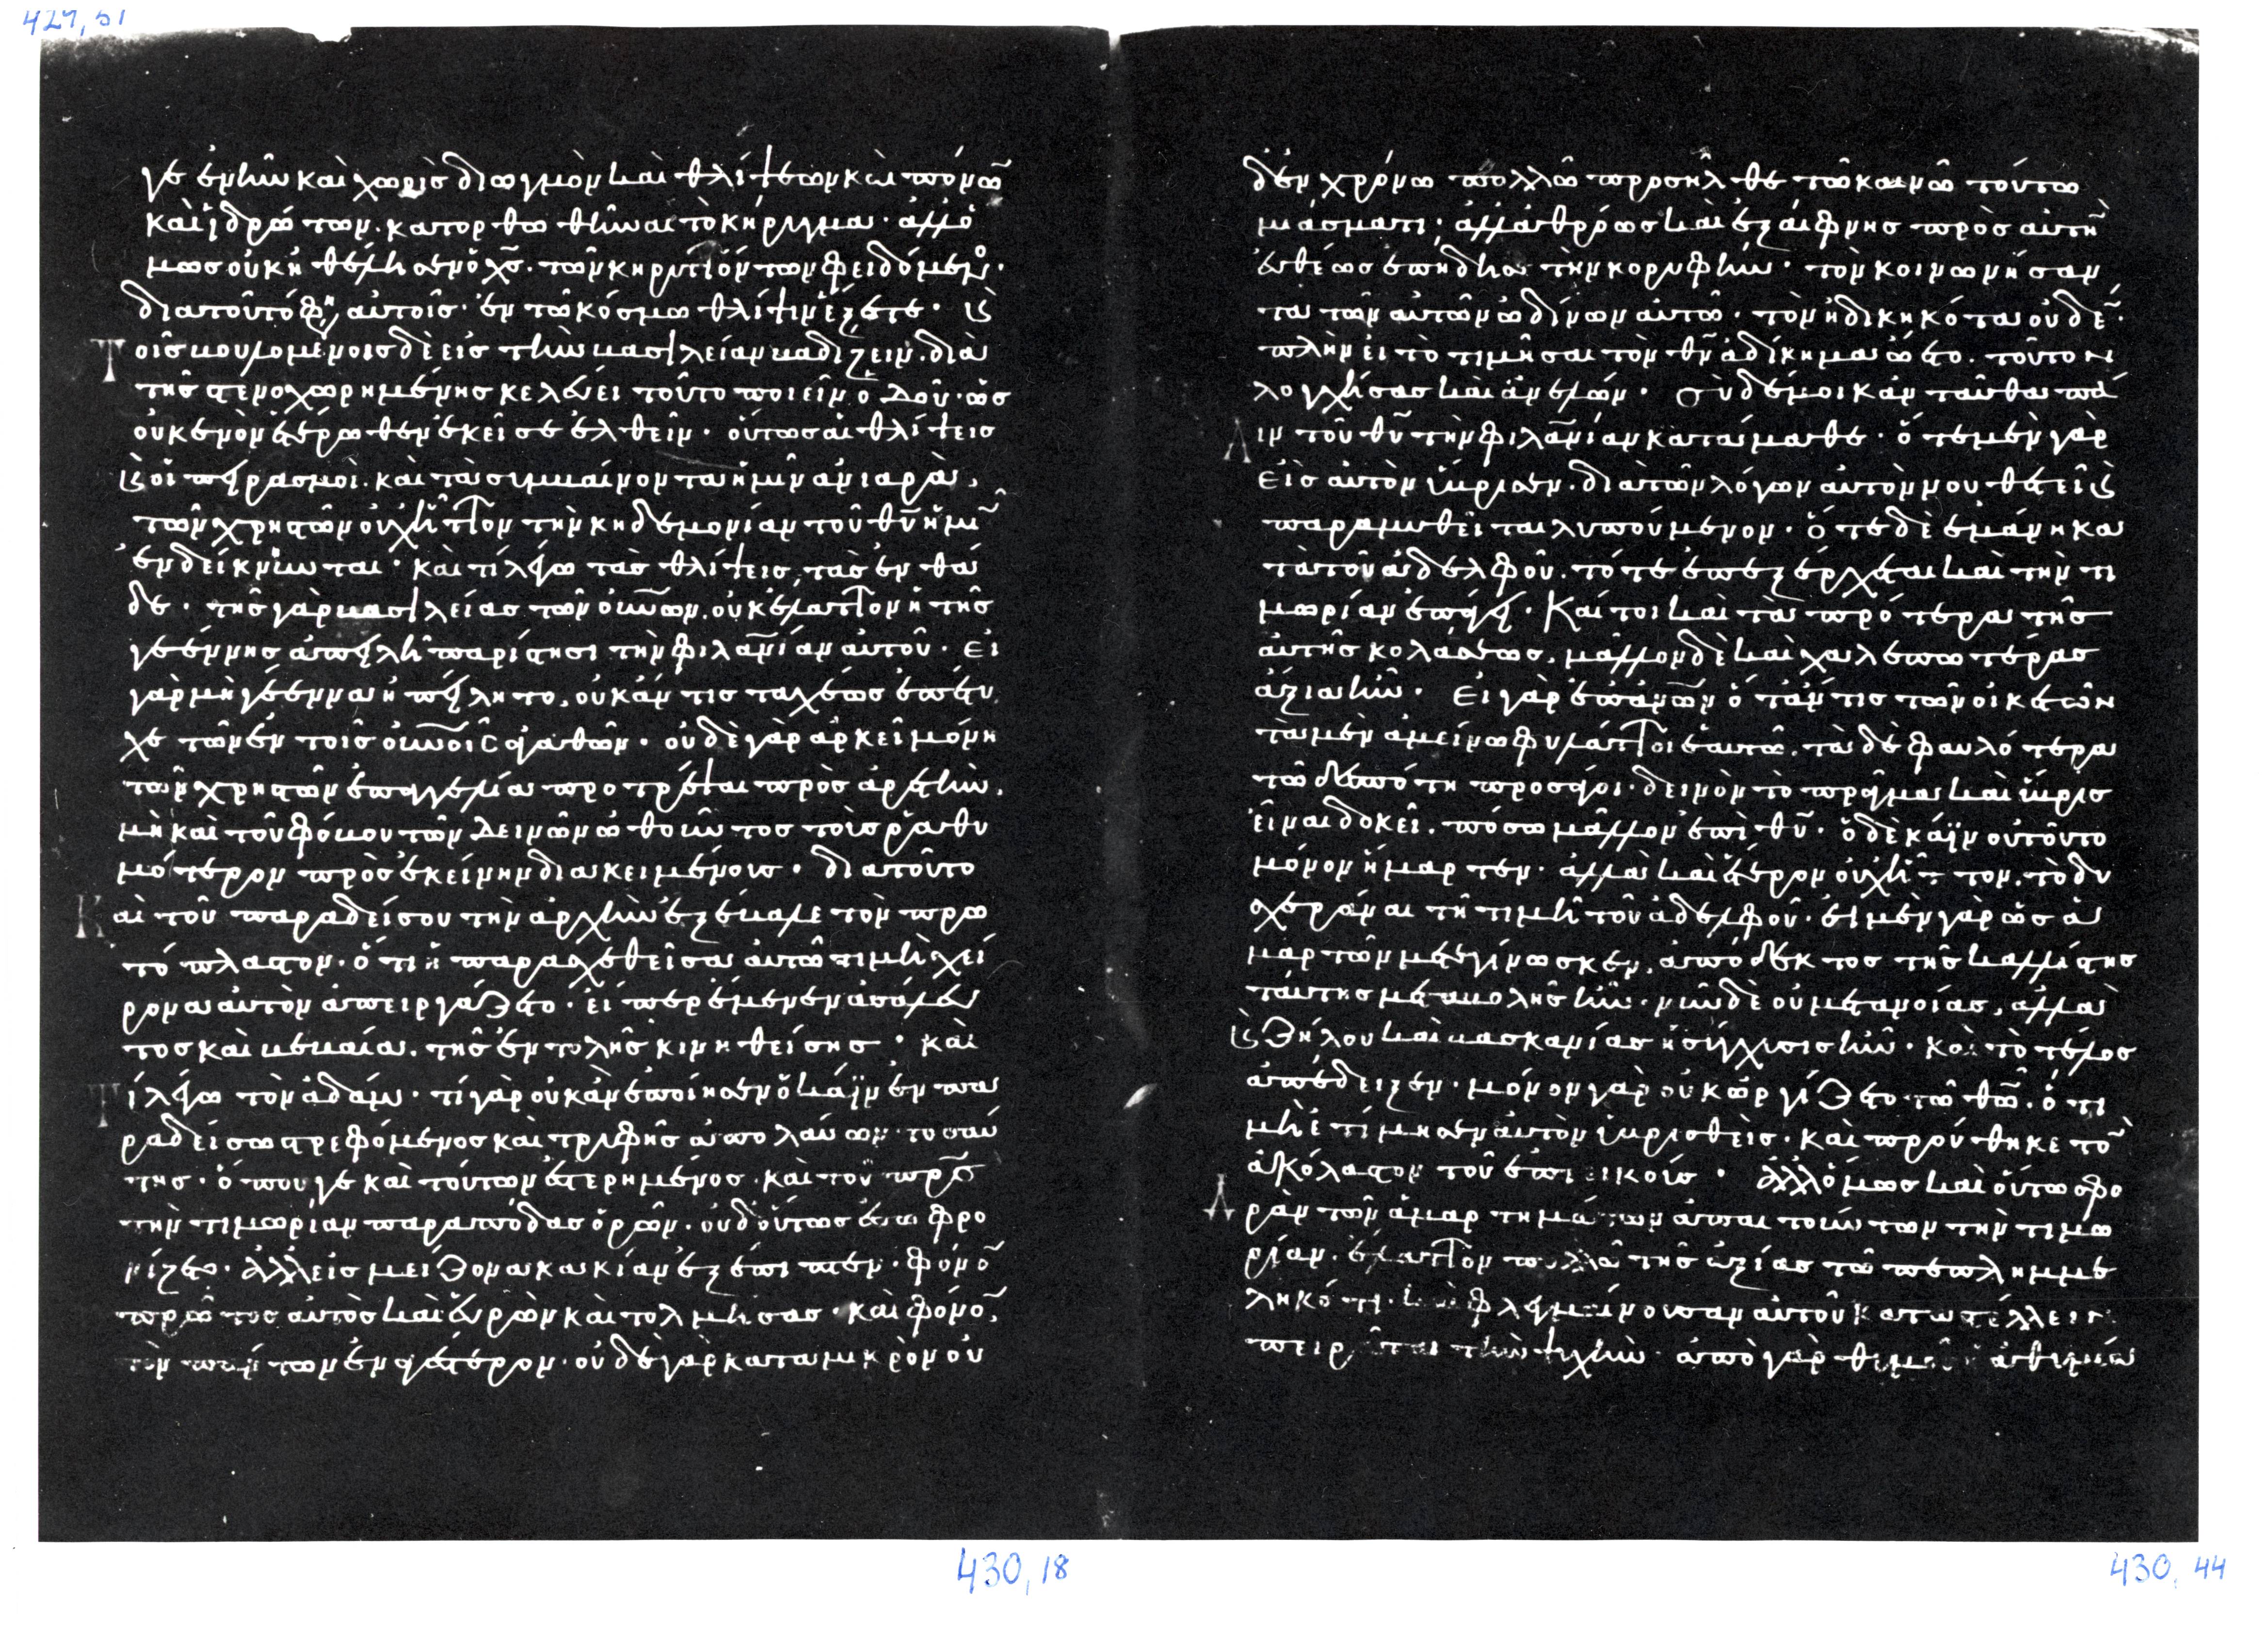 427, 51
γε ἐνῆν καὶ χωρὶς διωγμῶν καὶ θλίψεων καὶ πόνω
καὶ ἱδρώτων. κατορθωθῆναι τὸ κήρυγμα· ἀλλ' ὅ
μως οὐκ ἠθέλησεν ὁ χς. τῶν κηρυττόντων φειδόμεν·
διατοῦτό φη, αὐτοῖς· ἐν τῶ κόσμω θλίψιν ἕξετε· καὶ
Τοῖς βουλομένοις δὲ εἰς τὴν βασιλείαν βαδίζειν. διὰ
τῆς στενοχωρημένης κελεύει τοῦτο ποιεῖν ὁδοῦ· ὡς
οὐκ ἐνὸν ἑτέρωθεν ἐκεῖσε ἐλθεῖν· οὕτως αἱ θλίψεις
καὶ οἱ πειρασμοὶ. καὶ τὰ συμβαίνοντα ἡμῖν ἀνιαρὰ,
τῶν χρηστῶν οὐχ ἧττον τὴν κηδεμονίαν τοῦ θυ ἡμῖ
ἐνδείκνυνται· καὶ τί λέγω τὰς θλίψεις, τὰς ἐνθά
δε· τῆς γὰρ βασιλείας τῶν οὐνῶν. οὐκ ἔλαττον ἡ τῆς
γεέννης ἀπειλὴ παρίστησι τὴν φιλανίαν αὐτοῦ· εἰ
γὰρ μὴ γέεννα ἠπείλητο, οὐκ ἄν τις ταχέως ἐπέτυ
χε τῶν ἐν τοῖς οὐνοῖς ἀγαθῶν· οὐδὲ γὰρ ἀρκεῖ μόνη
τῶν χρηστῶν ἐπαγγελία προτρέψαι πρὸς ἀρετὴν.
μὴ καὶ τοῦ φόβου τῶν δεινῶν ὠθοῦντος τοὺς ῥαθυ
μότερον πρὸς ἐκείνην διακειμένους· διατοῦτο
Καὶ τοῦ παραδείσου τὴν ἀρχὴν ἐξέβαλε τὸν πρω
τόπλαστον· ὅτι ἡ παρασχεθεῖσα αὐτῶ τιμὴ χεί
ρονα αὐτὸν ἀπειργάζετο· εἴπερ ἔμενεν ἀσάλευ
τος καὶ βεβαία. τῆς ἐντολῆς κινηθείσης· καὶ
Τί λέγω τὸν ἀδάμ· τί γὰρ οὐκ ἂν ἐποίησεν ὁ κάϊν ἐν πα
ραδείσω στρεφόμενος καὶ τρυφῆς ἀπολαύων τοσαύ
της· ὅπου γε καὶ τούτων ἐστερημένος. καὶ τοῦ πρς
τὴν τιμωρίαν παραπόδας ὁρῶν. οὐδ' οὕτως ἐσωφρο
νίζετο· ἀλλ' εἰς μείζονα κακίαν ἐξέπιπτεν. φόνο
πρῶτος αὐτὸς καὶ εὑρὼν καὶ τολμήσας· καὶ φόνο,
τὸν πάντων ἐναγέστερον. οὐδὲ γὰρ κατὰ μικρὸν οὐ
430, 18
δ' ἐν χρόνω πολλῶ προσῆλθε τῶ καινῶ τούτω
μιάσματι; ἀλλ' ἀθρόως καὶ ἐξαίφνης πρὸς αὐτὴ
εὐθέως ἐπήδησε τὴν κορυφὴν· τὸν κοινωνήσαν
τα τῶν αὐτῶν ὠδίνων αὐτῶ· τὸν ἠδικηκότα οὐδέ·
πλὴν εἰ τὸ τιμῆσαι τὸν θν ἀδίκημα ὤετο. τοῦτον
λογχήσας καὶ ἀνελών· σὺ δέ μοι κἀνταῦθα πά
Λιν τοῦ θυ τὴν φιλανίαν καταμανθε· ὅτε μὲν γὰρ
εἰς αὐτὸν ὕβρισεν. διὰ τῶν λόγων αὐτὸν νουθετεῖ καὶ
παραμυθεῖται λυπούμενον· ὅτε δὲ ἐμάνη κα
τὰ τοῦ ἀδελφοῦ. τότε ἐπεξέρχεται καὶ τὴν τι
μωρίαν ἐπάγει· Καίτοι καὶ τὰ πρότερα τῆς
αὐτῆς κολάσεως, μᾶλλον δὲ καὶ χαλεπωτέρας
ἄξια ἦν· εἰ γὰρ ἐπὶ ἀνων ὅτάν τις τῶν οἰκετῶν
τὰ μὲν ἀμείνω φυλάττοι ἑαυτῶ. τὰ δὲ φαυλότερα
τῶ δεσπότη προσάγοι. δεινὸν τὸ πρᾶγμα καὶ ὕβρις
εἶναι δοκεῖ. πόσω μᾶλλον ἐπὶ θυ· ὁ δὲ κάϊν οὐ τοῦτο
μόνον ἥμαρτεν· ἀλλὰ καὶ ἕτερον οὐχ ἧττον. τὸ δυ
σχεράναι τῆ τιμῆ τοῦ ἀδελφοῦ· εἰ μὲν γὰρ ὡς ἁ
μαρτὼν μετεγίνωσκεν, ἀπόδεκτος τῆς καλλίστης
ταύτης μεταβολῆς ἦν· νῦν δὲ οὐ μετανοίας, ἀλλὰ
καὶ ζήλου καὶ βασκανίας ἡ σύγχυσις ἦν· καὶ τὸ τέλος
ἀπέδειξεν· μόνον γὰρ οὐκ ὠργίζετο τῶ θῶ. ὅτι
μὴ ἐτίμησεν αὐτὸν ὑβρισθεὶς. καὶ προύθηκε τὸ
ἀκόλαστον τοῦ ἐπιεικοῦς· ἀλλ' ὅμως καὶ οὕτω σφο
Δρὰν τῶν ἁμαρτημάτων ἀπαιτούντων τὴν τιμω
ρίαν. ἐλάττον πολλῶ τῆς ἀξίας τῶ πεπλημμε
ληκότι. καὶ φλεγμαίνουσαν αὐτοῦ καταστέλλειν
πειρᾶται τὴν ψυχὴν· ἀπὸ γὰρ θυμοῦ ἀθυμία
430, 44